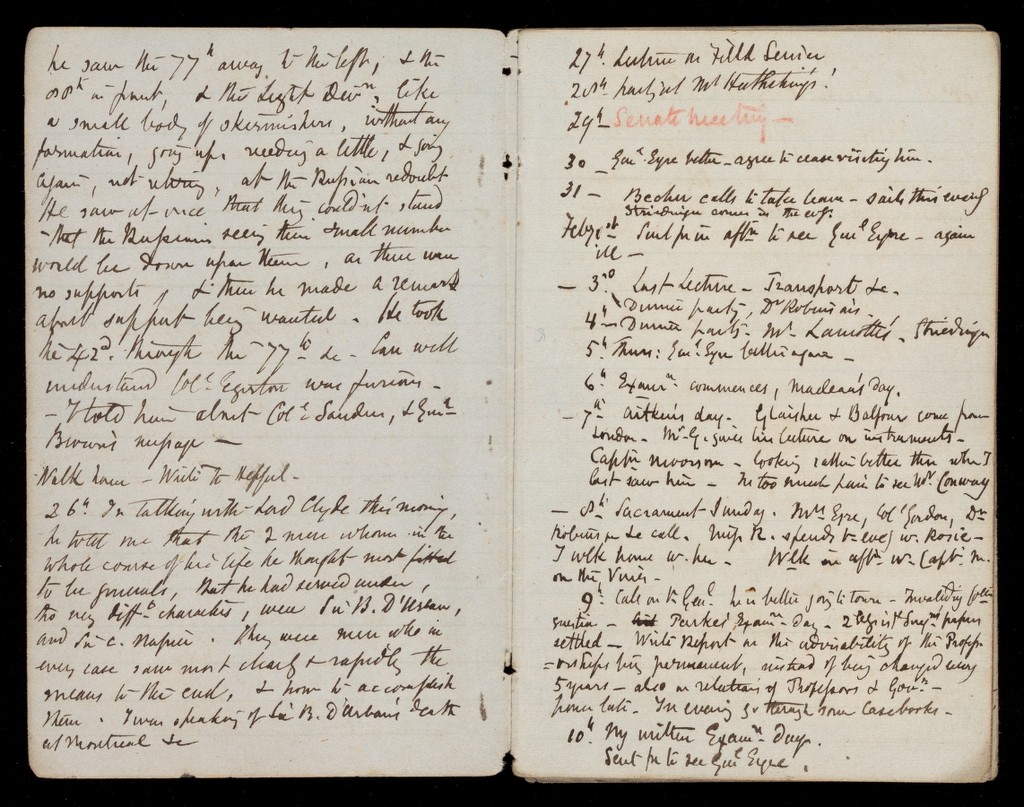 he saw the 77th away to the left, & the
88th in front, & the Light Divn, like
a small body of skirmishers, without any
formation, going up, needing a little, & going
again, not retiring, at the Russian redoubt
He saw at once that they couldn't stand
- that the Russians seeing their small number
would be down upon them, as there were
no supports, & then he made a remark
about support being wanted. He took
the 42d. through the 77th &c - Can well
understand Coll Egerton was furious -
- I told him about Coll Sanders, & Genl
Brown's message -
Walk home - Write to
26th In talking with Lord Clyde this morning,
he told me that the 2 men whom in the
whole course of his life he thought most fitted
to be generals, that he had served under,
tho very difft characters, were Sir B. D'Urban,
and Sir C. Napier. They were men who in
every case saw most clearly & rapidly the
means to the end, & how to accomplish
them. I was speaking of Sir B. D'Urban's death
at Montreal &c
27th Lecture on Field Service
28th party at Mr Hutchings'.
29th Senate meeting -
30 - Genl Eyre better - agree to cease visiting him.
31 - Becher calls to take leave - sails this evening
Striedinger comes in the evg.
Feby 1st Sent for in aftn to see Genl Eyre - again
ill -
- 3rd Last Lecture - Transport &c.
Dinner party, Dr Robinson's
4th - Dinner party - Mr Lamotte's - Striedinger
5th Thurs: Genl Eyre better again -
6th Examn commences, Maclean's day.
- 7th Aitken's day. Glaisher & Balfour come from
London - Mr G. gives his lecture on instruments -
Captn Moorsom - looking rather better than when I
last saw him - In too much pain to see Mr. Conway
- 8th Sacrament Sunday. Mrs Eyre, Coll Gordon, Dr
Robinson &c call. Miss R. spends the eveg w. Rosie -
I walk home w. her. Walk in aftn w. Captn M.
on the Lines -
9th Call on the Genl. he is better going to town - Invaliding
question - Parkes' Examn day - 2 Asst Surgns papers
settled - Write Report on the advisability of the Profess-
=orships being permanent, instead of being changed every
5 years - also on relations of Professors & Govn -
In evening go through some Casebooks -
10th My written Examn day.
Sent for to see Genl Eyre.